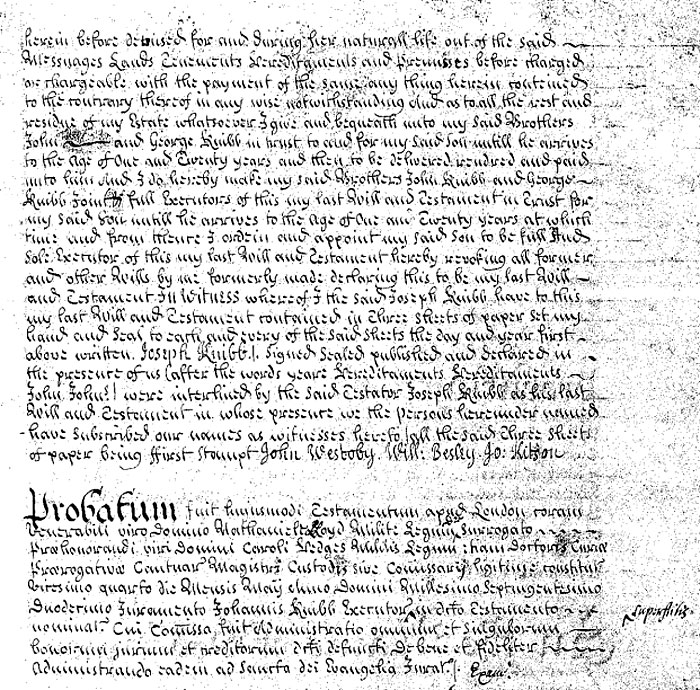 herein before devised for and during her naturall life out of the said
Messuages Lands Tenements Hereditaments and Premisses before charged
or chargeable with the payment of the same any thing herein conteined
to the contrary thereof in any wise notwithstanding And as to all the rest and
residue of my Estate whatsoever I give and bequeath unto my said Brothers
John and George Knibb in trust to and for my said son untill he arrives
to the Age of One and Twenty years and then to be delivered rendred and paid
unto him And I do hereby make my said Brothers John Knibb and George
Knibb Joint full Executors of this my last Will and Testament in Trust for
my said Son untill he arrives to the Age of One and Twenty years at which
time and from thence I ordein and appoint my said Son to be full And
Sole Executor of this my last Will and Testament hereby revoking all former
and other Wills by me formerly made declaring this to be my last Will
and Testament In Witness whereof I the said Joseph Knibb have to this
my last Will and Testament contained in Three sheets of paper set my
hand and Seal to each and every of the said sheets the day and year first
above written. Joseph Knibb. Signed Sealed published and declared in
the presence of us (after the words yeare Hereditaments Hereditaments
John John) were interlined by the said Testator Joseph Knibb as his last
Will and Testament in whose presence we the persons hereunder named
have Subscribed our names as witnesses hereto (all the said Three sheets
of paper being first Stampt John Westoby. Will: Besley Jo: Kitson
Probatum fuit hujusmodi Testamentum apud London coram
Venerabili viro Domino Nathaniele Lloyd Milite Legum Surrogato
Præhonorandi viri Domini Caroli Hedges Militis Legum etiam Doctoris Curiæ
Prærogativæ Cantuar Magistri Custodis sive Comissarij legitime constitut
vicesimo quarto die Mensis Maij Anno Domini Millesimo Septingentesimo
Duodecimo Juramento Johannis Knibb Executor in dicto Testamento
superstitis
nominat Cui Comissa fuit Administratio omnium et Singulorum
bonorum jurium et creditorum dicti defuncti De bene et fideliter
Administrando eadem ad Sancta dei Evangelia Jurat. Exam.